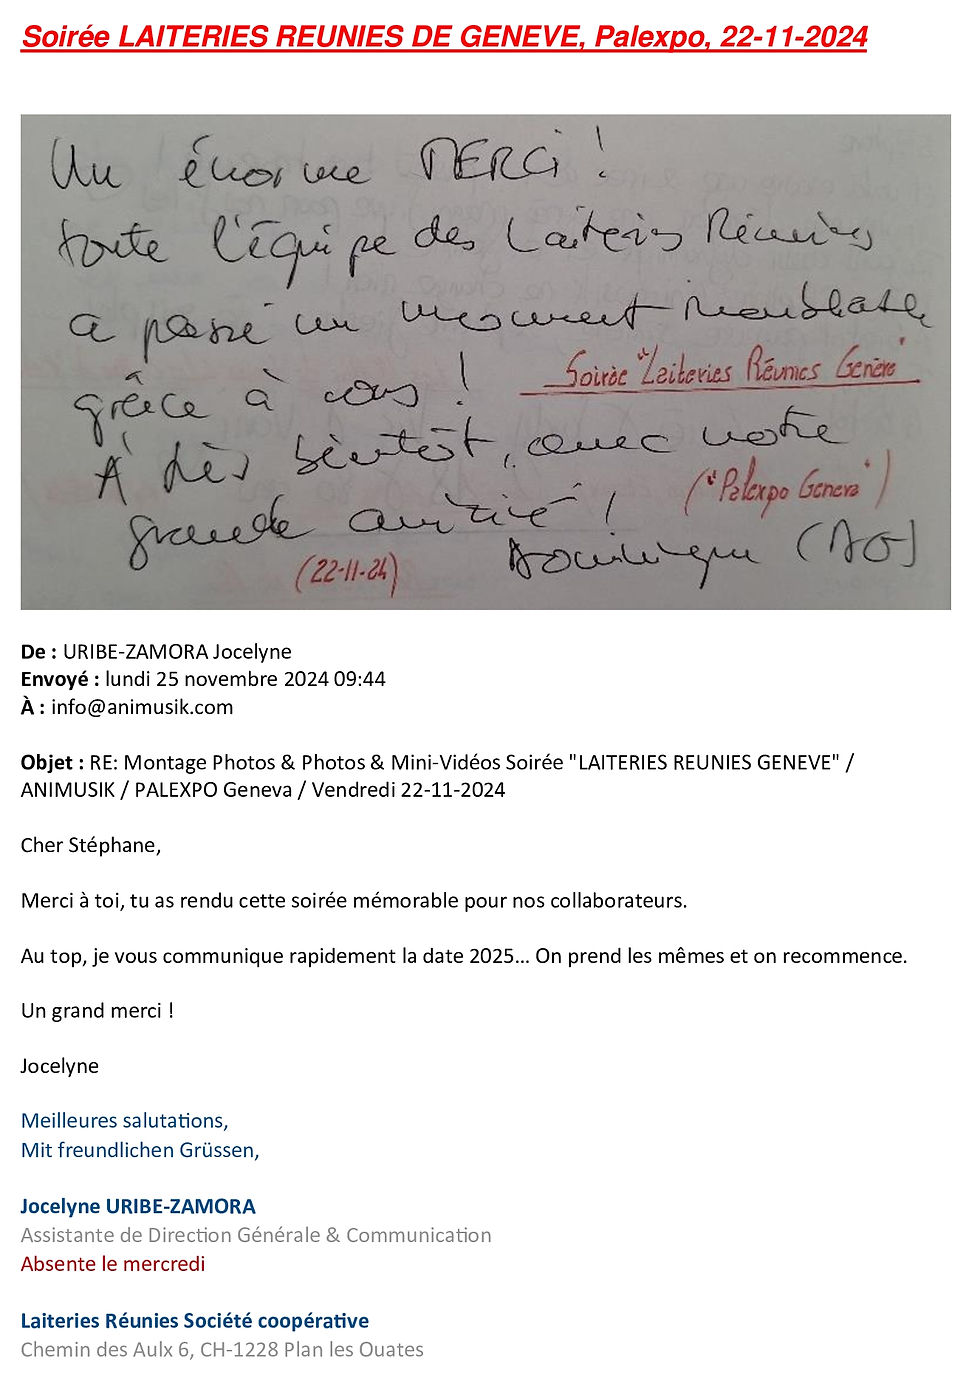 Soirée LAITERIES REUNIES DE GENEVE, Palexpo, 22-11-2024
Un énorme MERCI !
toute l'équipe des Laiteries Réunies
a passé un moment inoubliable
grâce à vous !
Soirée "Laiteries Réunies Genève"
À très bientôt, avec notre
("Palexpo Geneva")
grande amitié !
(22-11-24)
Dominique (DG)
De : URIBE-ZAMORA Jocelyne
Envoyé : lundi 25 novembre 2024 09:44
À : info@animusik.com
Objet : RE: Montage Photos & Photos & Mini-Vidéos Soirée "LAITERIES REUNIES GENEVE" /
ANIMUSIK / PALEXPO Geneva / Vendredi 22-11-2024
Cher Stéphane,
Merci à toi, tu as rendu cette soirée mémorable pour nos collaborateurs.
Au top, je vous communique rapidement la date 2025... On prend les mêmes et on recommence.
Un grand merci !
Jocelyne
Meilleures salutations,
Mit freundlichen Grüssen,
Jocelyne URIBE-ZAMORA
Assistante de Direction Générale & Communication
Absente le mercredi
Laiteries Réunies Société coopérative
Chemin des Aulx 6, CH-1228 Plan les Ouates